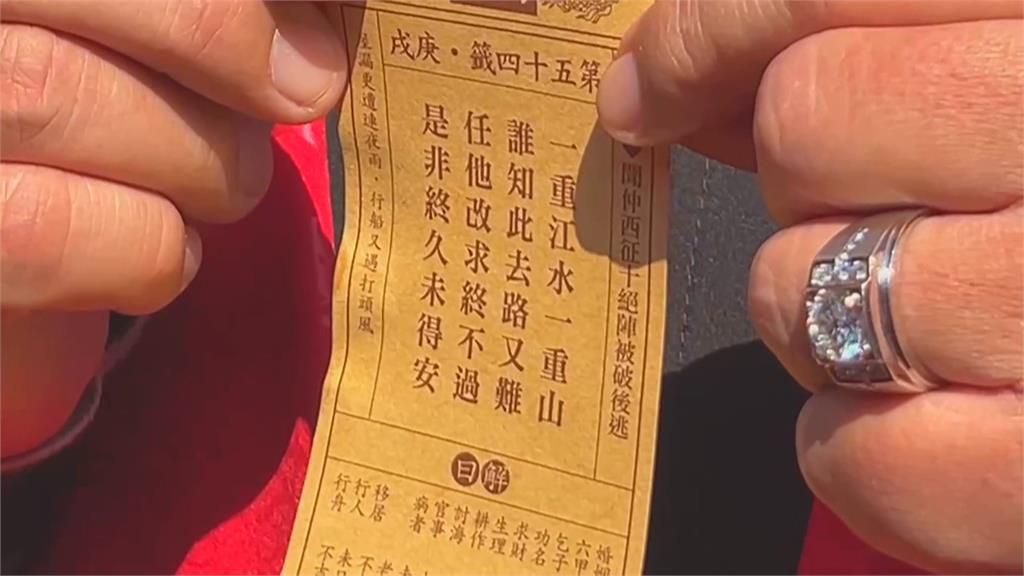 第五十四籤・庚戌
聞仲西征十絕陣被破後逃
一重江水一重山
誰知此去路又難
任他改求終不過
是非終久未得安
漏更遭連夜雨，行船又遇打頭風
解曰
婚姻
六甲
乞子
功名
求財
生理
耕作
討海
官事
病者
移居
行人
行舟